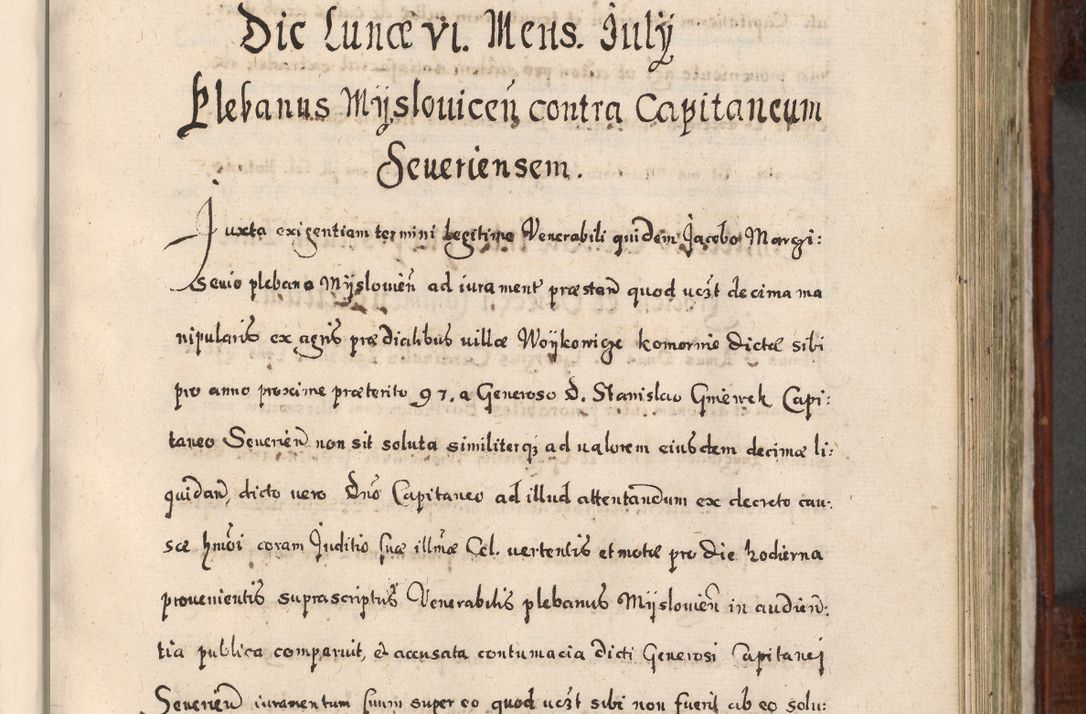 Die Lunæ VI. Mens. Julÿ
Plebanus Mÿslouiceñ contra Capitaneum
Seueriensem.
Juxta exigentiam termini legitime Venerabili quidem Jacobo Margi:
seuio plebano Mÿslouieñ ad iurament præstañ quod uczt decima ma
nipularis ex agris prædialibus uillæ Woÿkowicze komornie dictæ sibi
pro anno proxime præterito 97. a Generoso D. Stanislao Gniewek Capi:
taneo Seuerieñ non sit soluta similiterq; ad ualorem eiusdem decimæ li:
quidañ, dicto uero Dño Capitaneo ad illud attentandum ex decreto cau:
sæ hmõi coram Juditio suæ illmæ Cel. uertentis et motæ pro die hodierna
prouenientis suprascriptus Venerabilis plebanus Mÿslouieñ in audieñ:
tia publica comparuit, et accusata contumacia dicti Generosi Capitanei
Seuerieñ iuramentum suum super eo quod uczt sibi non fuerit ab eo solu: